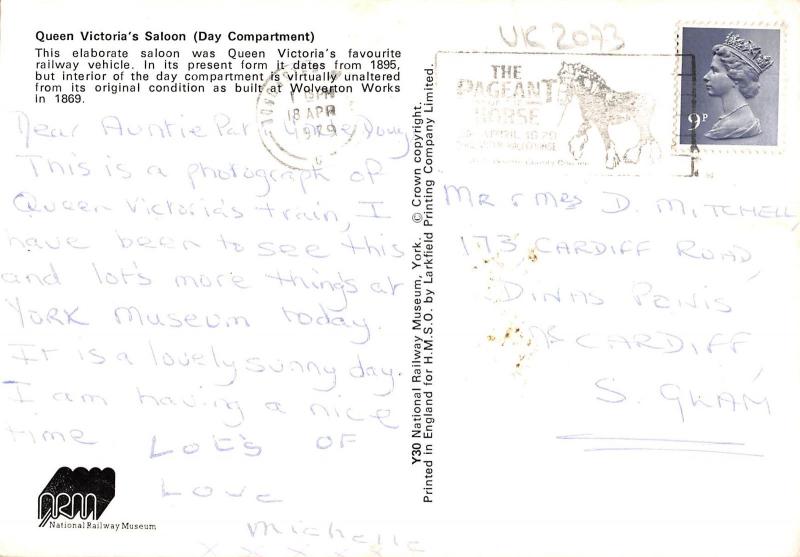 Queen Victoria's Saloon (Day Compartment)
This elaborate saloon was Queen Victoria's favourite
railway vehicle. In its present form it dates from 1895,
but interior of the day compartment is virtually unaltered
from its original condition as built at Wolverton Works
in 1869.
Dear Auntie Pat Uncle Doug
This is a photograph of
Queen Victoria's train, I
have been to see this
and lot's more things at
YORK MUSEUM today.
It is a lovely sunny day.
I am having a nice
time LOT'S OF
LOVE
Michelle
x x x x x x
National Railway Museum
Y30 National Railway Museum, York. © Crown copyright.
Printed in England for H.M.S.O. by Larkfield Printing Company Limited.
UK 2073
PM
18 APR
1979
THE
PAGEANT
OF THE
HORSE
APRIL
9P
MR & MRS D. MITCHELL,
173 CARDIFF ROAD,
DINAS POWIS
CARDIFF
S. GLAM